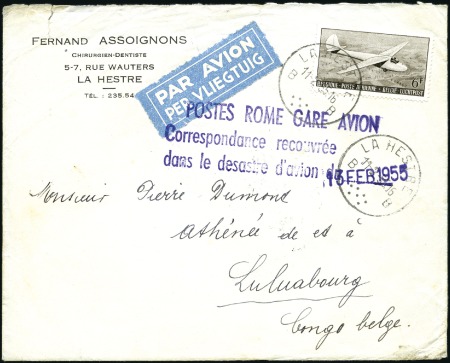 FERNAND ASSOIGNONS
CHIRURGIEN-DENTISTE
5-7, RUE WAUTERS
LA HESTRE
TÉL : 235.54
PAR AVION
PER VLIEGTUIG
6F
LA HESTRE
POSTES ROME GARE AVION
Correspondance recouvrée
dans le desastre d'avion du
13 FEB 1955
LA HESTRE
Monsieur Pierre Dumont
Athénée de et à
Luluabourg
Congo belge.